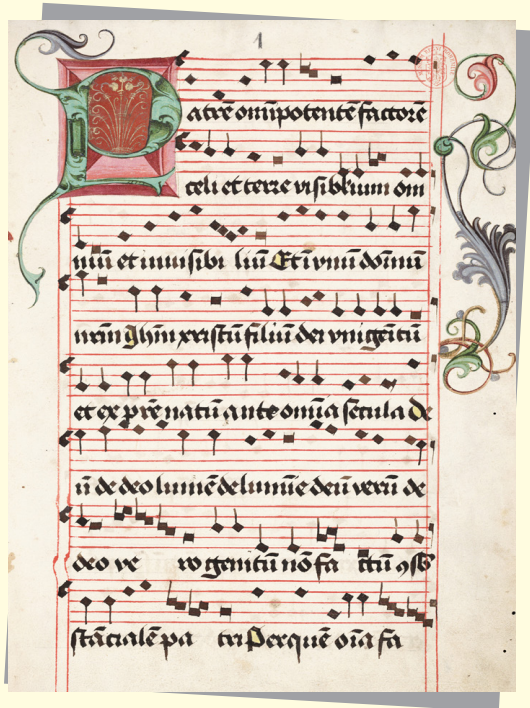 1
Patrē om̄ipotentē factorē
celi et terre visibilium om
niū et inuisibi liū Et ī vnū domīnū
nr̄m ihm̄ xristū filiū dei vnigenitū
et ex pr̄e natū ante om̄ia secula de
ū de deo lumē de lumīe deū verū de
deo ve ro genitū nō fa ctū ꝯsb
stācialē pa tri Per quē oīa fa